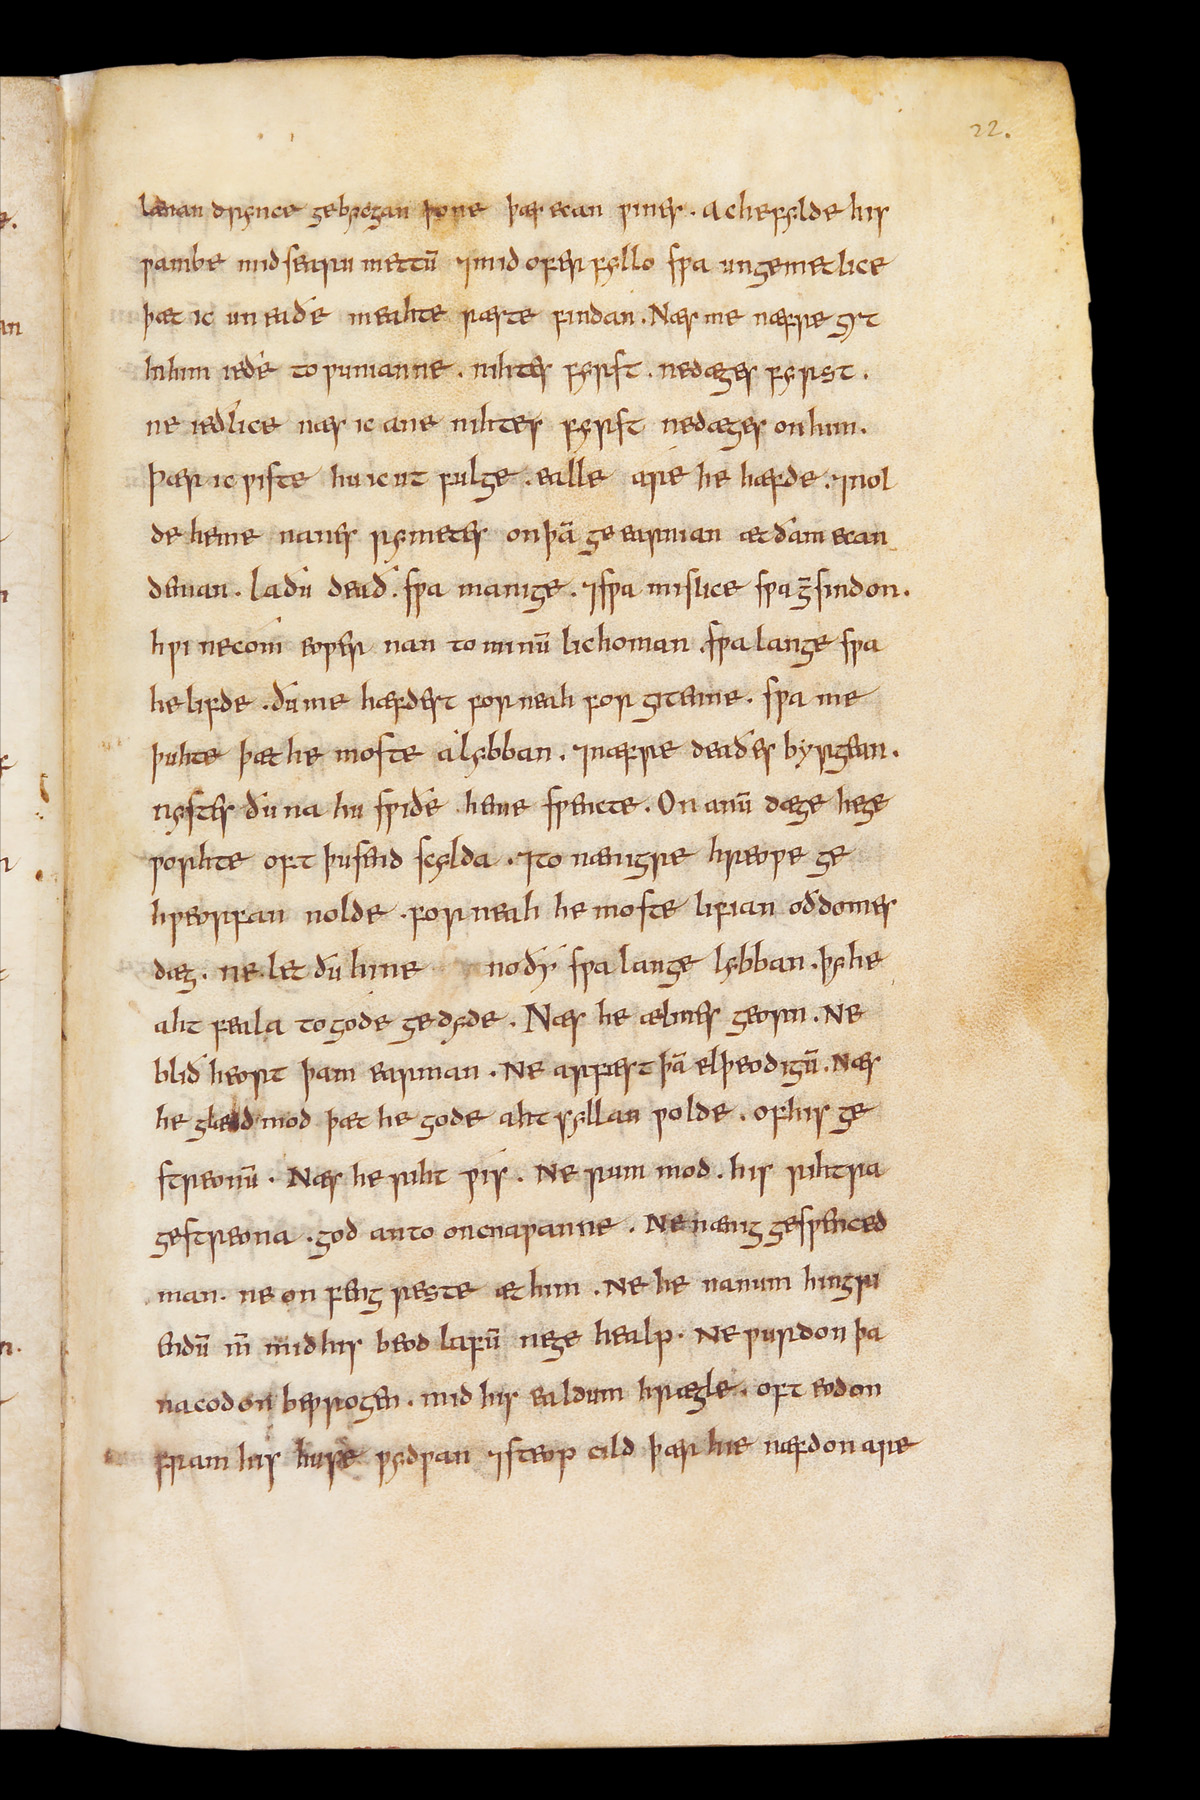 22.
lænan drynce gebycgan þone þæs ecan wines · Ac he fylde his
wambe mid searu mettū ⁊mid oferfyllo swa ungemetlice
þæt ic uneaðe meahte ræste findan · Næs me næfre gyt
himm ieðe to wunianne · nihtes fyrst · ne dæges fyrst ·
ne ieðlice næs ic ane nihtes fyrst ne dæges on him ·
Þær ic wiste hu ic ut fulge · ealle are he hæfde · ⁊nol
de he me nanes rymetes on þā geearnian æt ðam ecan
deman · La ðu deað · swa manige · ⁊swa mislice swa ꝥ sindon ·
hwi ne com eower nan to minū lichoman · swa lange swa
he lifde · ðu me hæfdest for neah forgitenne · swa me
þuhte þæt he moste a lybban · ⁊næfre deaðes byrgean ·
nystes ðu na hu swiðe he me swencte · On anū dæge he ge
worhte oft þusend scylda · ⁊to nænigre hreowe ge
hweorfan nolde · for neah he moste lifian oð domes
dæg · ne let ðu hine no ðy swa lange lybban · þy he
aht feala to gode gedyde · Næs he ælmes georn · Ne
blið heort þam earman · Ne arfæst þā elþeodigū · Næs
he glæd mod þæt he gode aht syllan wolde · of his ge
streonū · Næs he riht wis · Ne rum mod · his rihtra
gestreona · god an to oncnawanne · Ne nænig geswenced
man · ne onfeng reste æt him · Ne he nanum hingri
endū in mid his beod lafū ne gehealp · Ne wurdon þa
nacodon bewrogen · mid his ealdum hrægle · oft eodon
fram his huse wydwan ⁊steop cild þær hie næfdon are